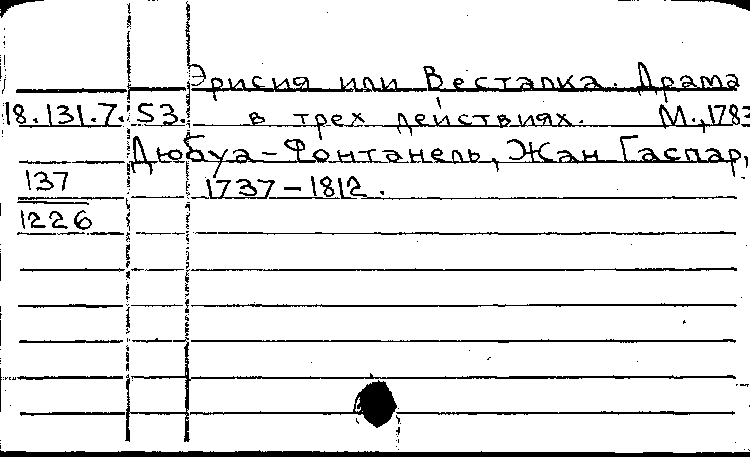 Эрисия или Весталка. Драма
18.131.7.53. в трех действиях. М.,1783
Дюбуа-Фонтанель, Жан Гаспар,
137 1737-1812.
1226